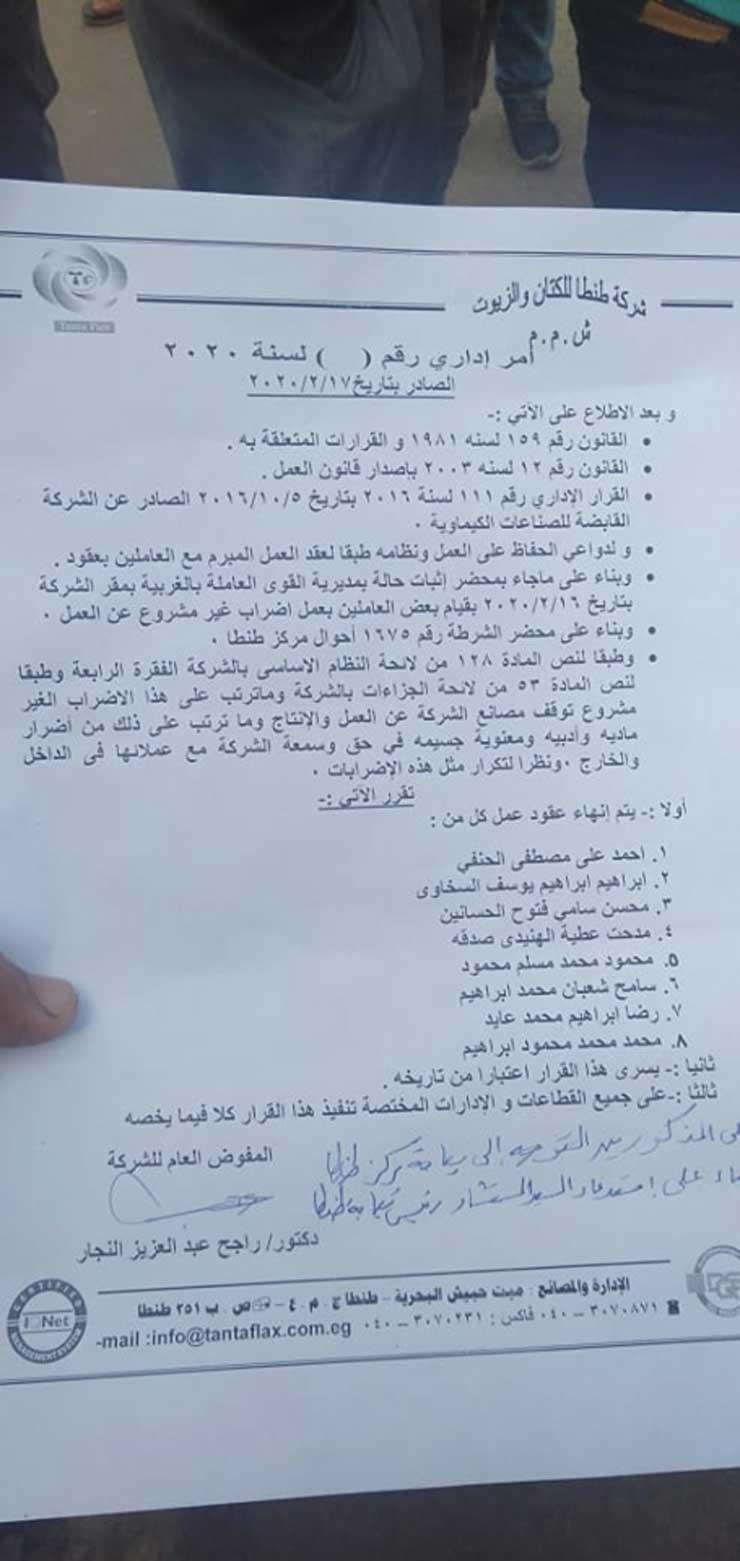 Tc
Tanta Flax
شركة طنطا للكتان والزيوت
ش . م . م
أمر إداري رقم ( ) لسنة ٢٠٢٠
الصادر بتاريخ ٢٠٢٠/٢/١٧
و بعد الاطلاع على الآتي :-
• القانون رقم ١٥٩ لسنه ١٩٨١ و القرارات المتعلقة به .
• القانون رقم ١٢ لسنه ٢٠٠٣ بإصدار قانون العمل .
• القرار الإداري رقم ١١١ لسنة ٢٠١٦ بتاريخ ٢٠١٦/١٠/٥ الصادر عن الشركة
القابضة للصناعات الكيماوية .
• و لدواعي الحفاظ على العمل ونظامه طبقا لعقد العمل المبرم مع العاملين بعقود .
• وبناء على ماجاء بمحضر إثبات حالة بمديرية القوى العاملة بالغربية بمقر الشركة
بتاريخ ٢٠٢٠/٢/١٦ بقيام بعض العاملين بعمل اضراب غير مشروع عن العمل .
• وبناء على محضر الشرطة رقم ١٦٧٥ أحوال مركز طنطا .
• وطبقا لنص المادة ١٢٨ من لائحة النظام الاساسى بالشركة الفقرة الرابعة وطبقا
لنص المادة ٥٣ من لائحة الجزاءات بالشركة وماترتب على هذا الاضراب الغير
مشروع توقف مصانع الشركة عن العمل والإنتاج وما ترتب على ذلك من أضرار
ماديه وأدبيه ومعنوية جسيمه في حق وسمعة الشركة مع عملائها فى الداخل
والخارج . ونظرا لتكرار مثل هذه الإضرابات .
تقرر الآتى :-
أولا :- يتم إنهاء عقود عمل كل من :
١. احمد على مصطفى الحنفي
٢. ابراهيم ابراهيم يوسف السخاوى
٣. محسن سامي فتوح الحسانين
٤. مدحت عطية الهنيدى صدقه
٥. محمود محمد مسلم محمود
٦. سامح شعبان محمد ابراهيم
٧. رضا ابراهيم محمد عابد
٨. محمد محمد محمود ابراهيم
ثانيا :- يسرى هذا القرار اعتبارا من تاريخه .
ثالثا :-على جميع القطاعات و الإدارات المختصة تنفيذ هذا القرار كلا فيما يخصه
المذكورين التوجه إلى نيابة مركز طنطا
على استدعاء السيد المستشار رئيس نيابة طنطا
المفوض العام للشركة
دكتور/ راجح عبد العزيز النجار
الإدارة والمصانع : ميت حبيش البحرية - طنطا ج . م . ع - ص . ب ٢٥١ طنطا
٣٠٧٠٨٧١ - ٠٤٠ فاكس : ٣٠٧٠٢٣١ - ٠٤٠
-mail :info@tantaflax.com.eg
CERTIFIED
IQNet
MANAGEMENT SYSTEM